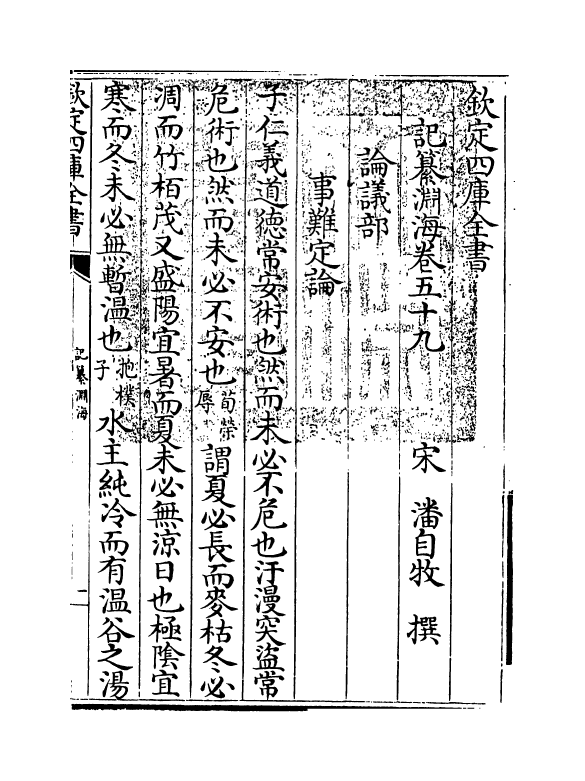 欽定四庫全書
記纂淵海卷五十九
宋　潘自牧　撰
論議部
事難定論
子仁義道徳常安術也然而未必不危也汙漫突盜常
危術也然而未必不安也荀榮辱謂夏必長而麥枯冬必
凋而竹栢茂又盛陽宜暑而夏未必無涼日也極隂宜
寒而冬未必無暫温也抱樸子水主純冷而有温谷之湯
欽定四庫全書
記纂淵海